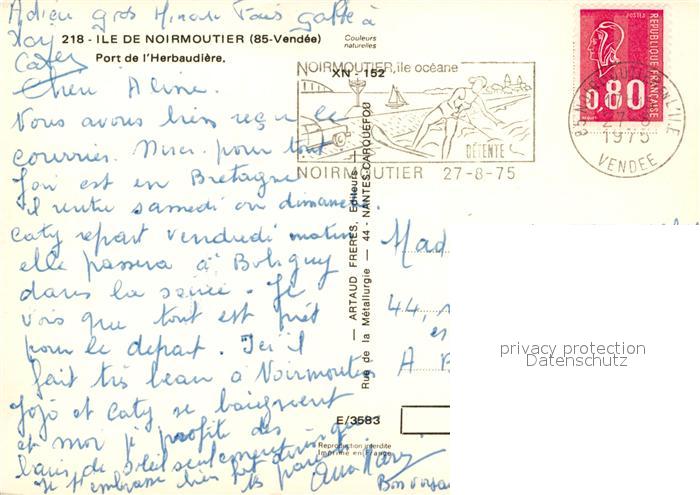 Adieu gros Minou Fais gaffe à
Xoy
Caty
218 - ILE DE NOIRMOUTIER (85-Vendée)
Couleurs
naturelles
Port de l'Herbaudière.
Chère Aline
Vous avons bien reçu le
courrier. Merci pour tout
est en Bretagne
il rentre samedi ou dimanche.
Caty repart vendredi matin
elle passera à Bobigny
dans la soirée. Je
vois que tout est prêt
pour le départ. Ici il
fait très beau à Noirmoutier
Jojo et Caty se baignent
et moi je profite des
bains de soleil seulement
Je t'embrasse bien fort
Bon voyage
NOIRMOUTIER, île océane
XN - 152
DÉTENTE
NOIRMOUTIER 27-8-75
POSTES
REPUBLIQUE FRANÇAISE
0,80
85 NOIRMOUTIER EN L'ILE
27-8
1975
VENDEE
— ARTAUD FRERES, Editeurs —
Rue de la Métallurgie — 44 - NANTES-CARQUEFOU
Mad
44
A B
E/3583
Reproduction interdite
Imprimé en France
privacy protection
Datenschutz